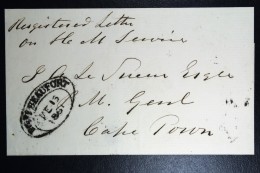 Registered Letter
on He M Service
J G Le Sueur Esqre
M. Genl
Cape Town
BEAUFORT
FE 15
186